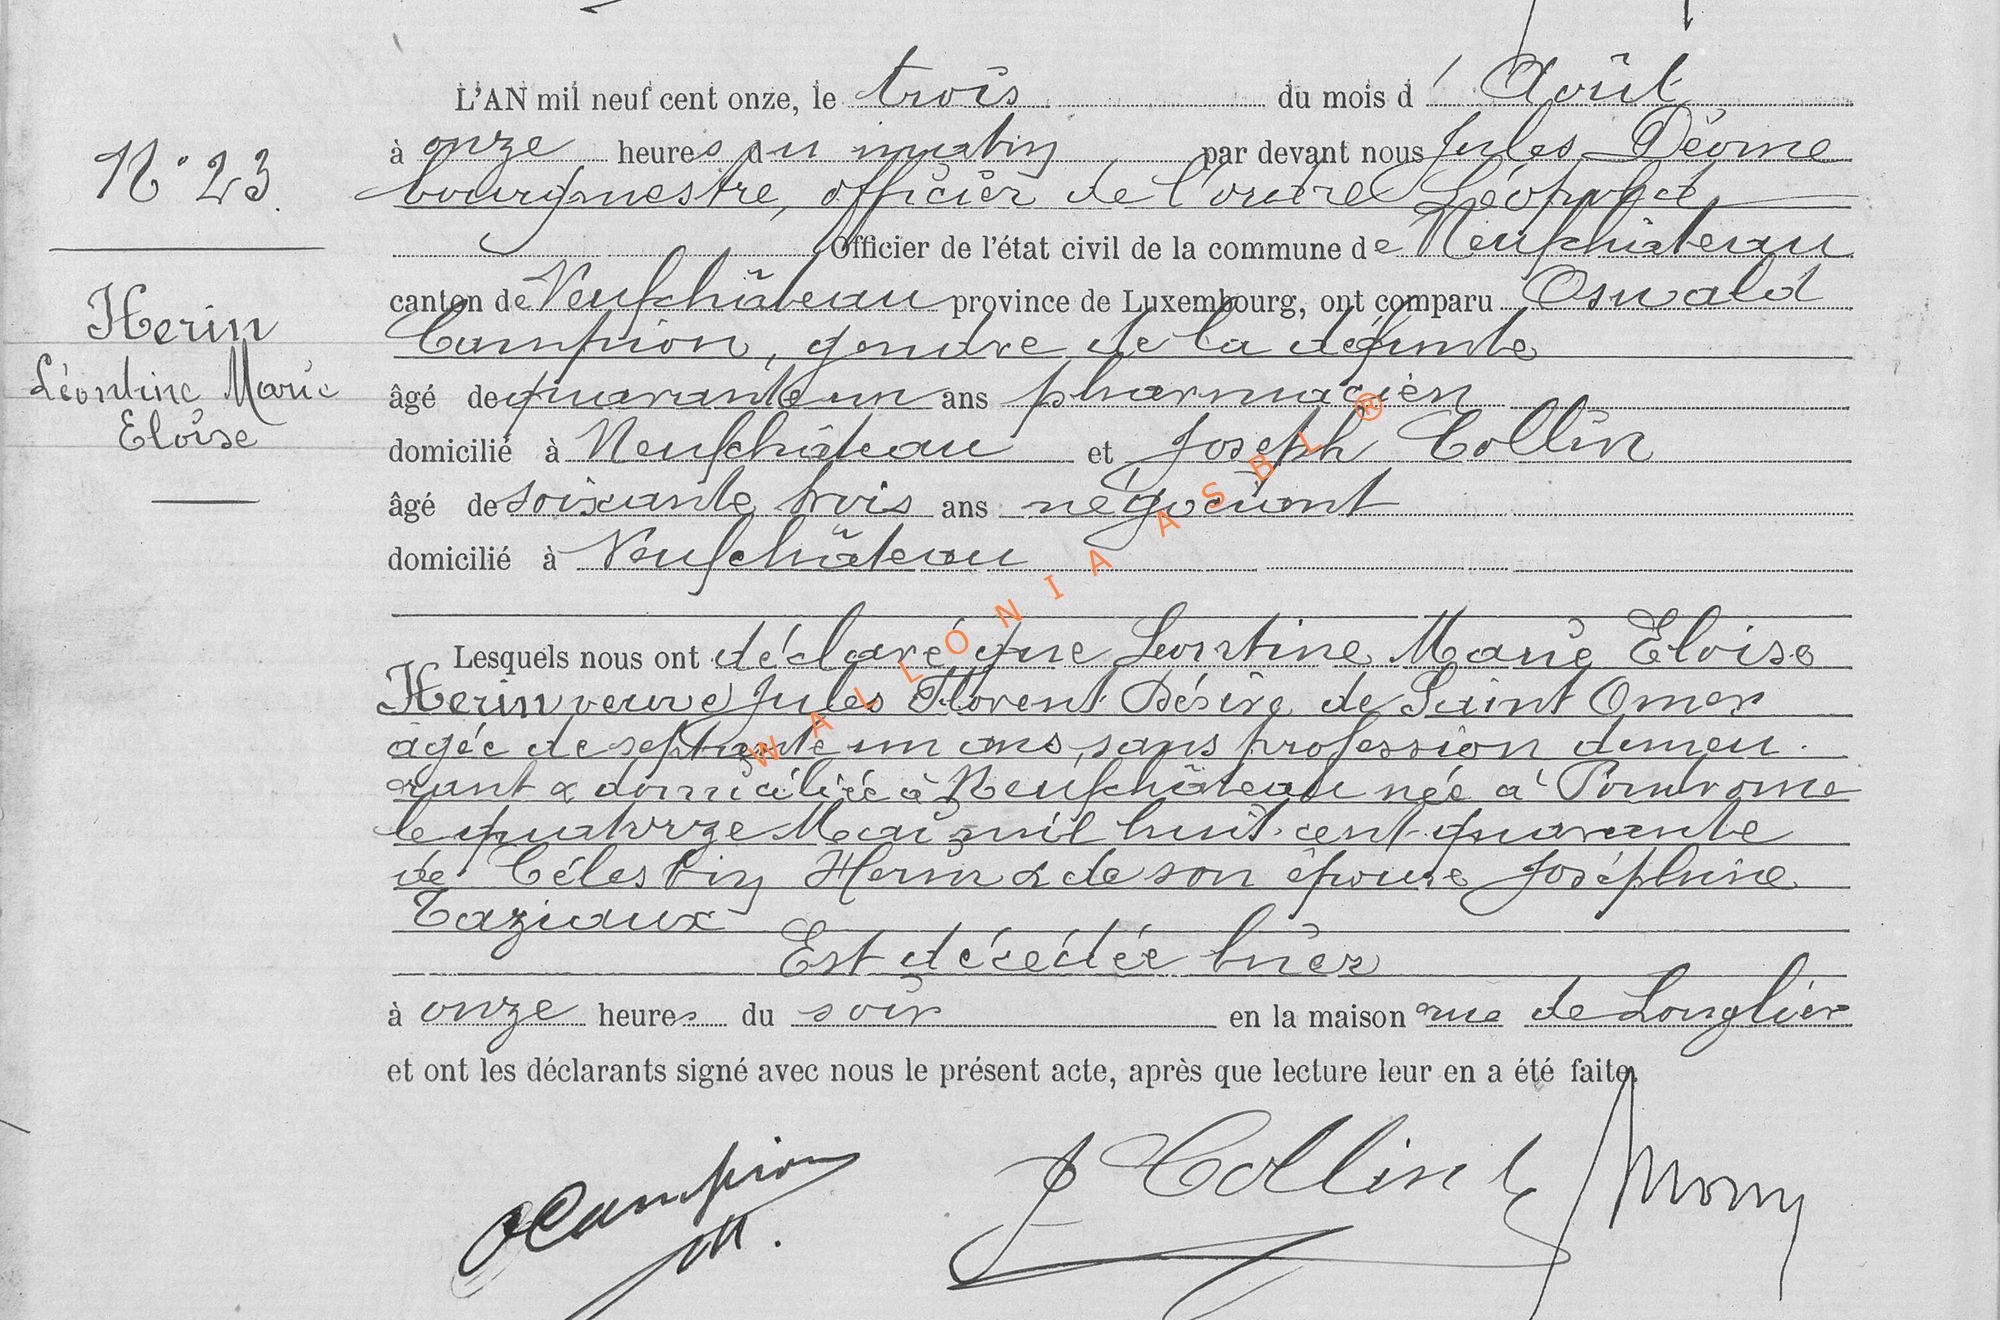 L'AN mil neuf cent onze, le trois du mois d'Août
à onze heures du matin par devant nous Jules Déome
N° 23.
bourgmestre, officier de l'ordre Léopold,
Officier de l'état civil de la commune de Neufchâteau
canton de Neufchâteau province de Luxembourg, ont comparu Oswald
Herin
Campion, gendre de la défunte
Léontine Marie
âgé de quarante un ans pharmacien
Eloïse
domicilié à Neufchâteau et Joseph Collin
âgé de soixante trois ans négociant
domicilié à Neufchâteau
Lesquels nous ont déclaré que Leontine Marie Eloise
Herin veuve Jules Florent Désiré de Saint Omer
âgée de septante un ans, sans profession demeu-
rant & domiciliée à Neufchâteau née à Pondrome
le quatorze Mai mil huit cent quarante
de Célestin Herin & de son épouse Joséphine
Taziaux
Est décédée hier
à onze heures du soir en la maison rue de Longlier
et ont les déclarants signé avec nous le présent acte, après que lecture leur en a été faite.
OCampion J Collin
WALLONIA ASBL ®